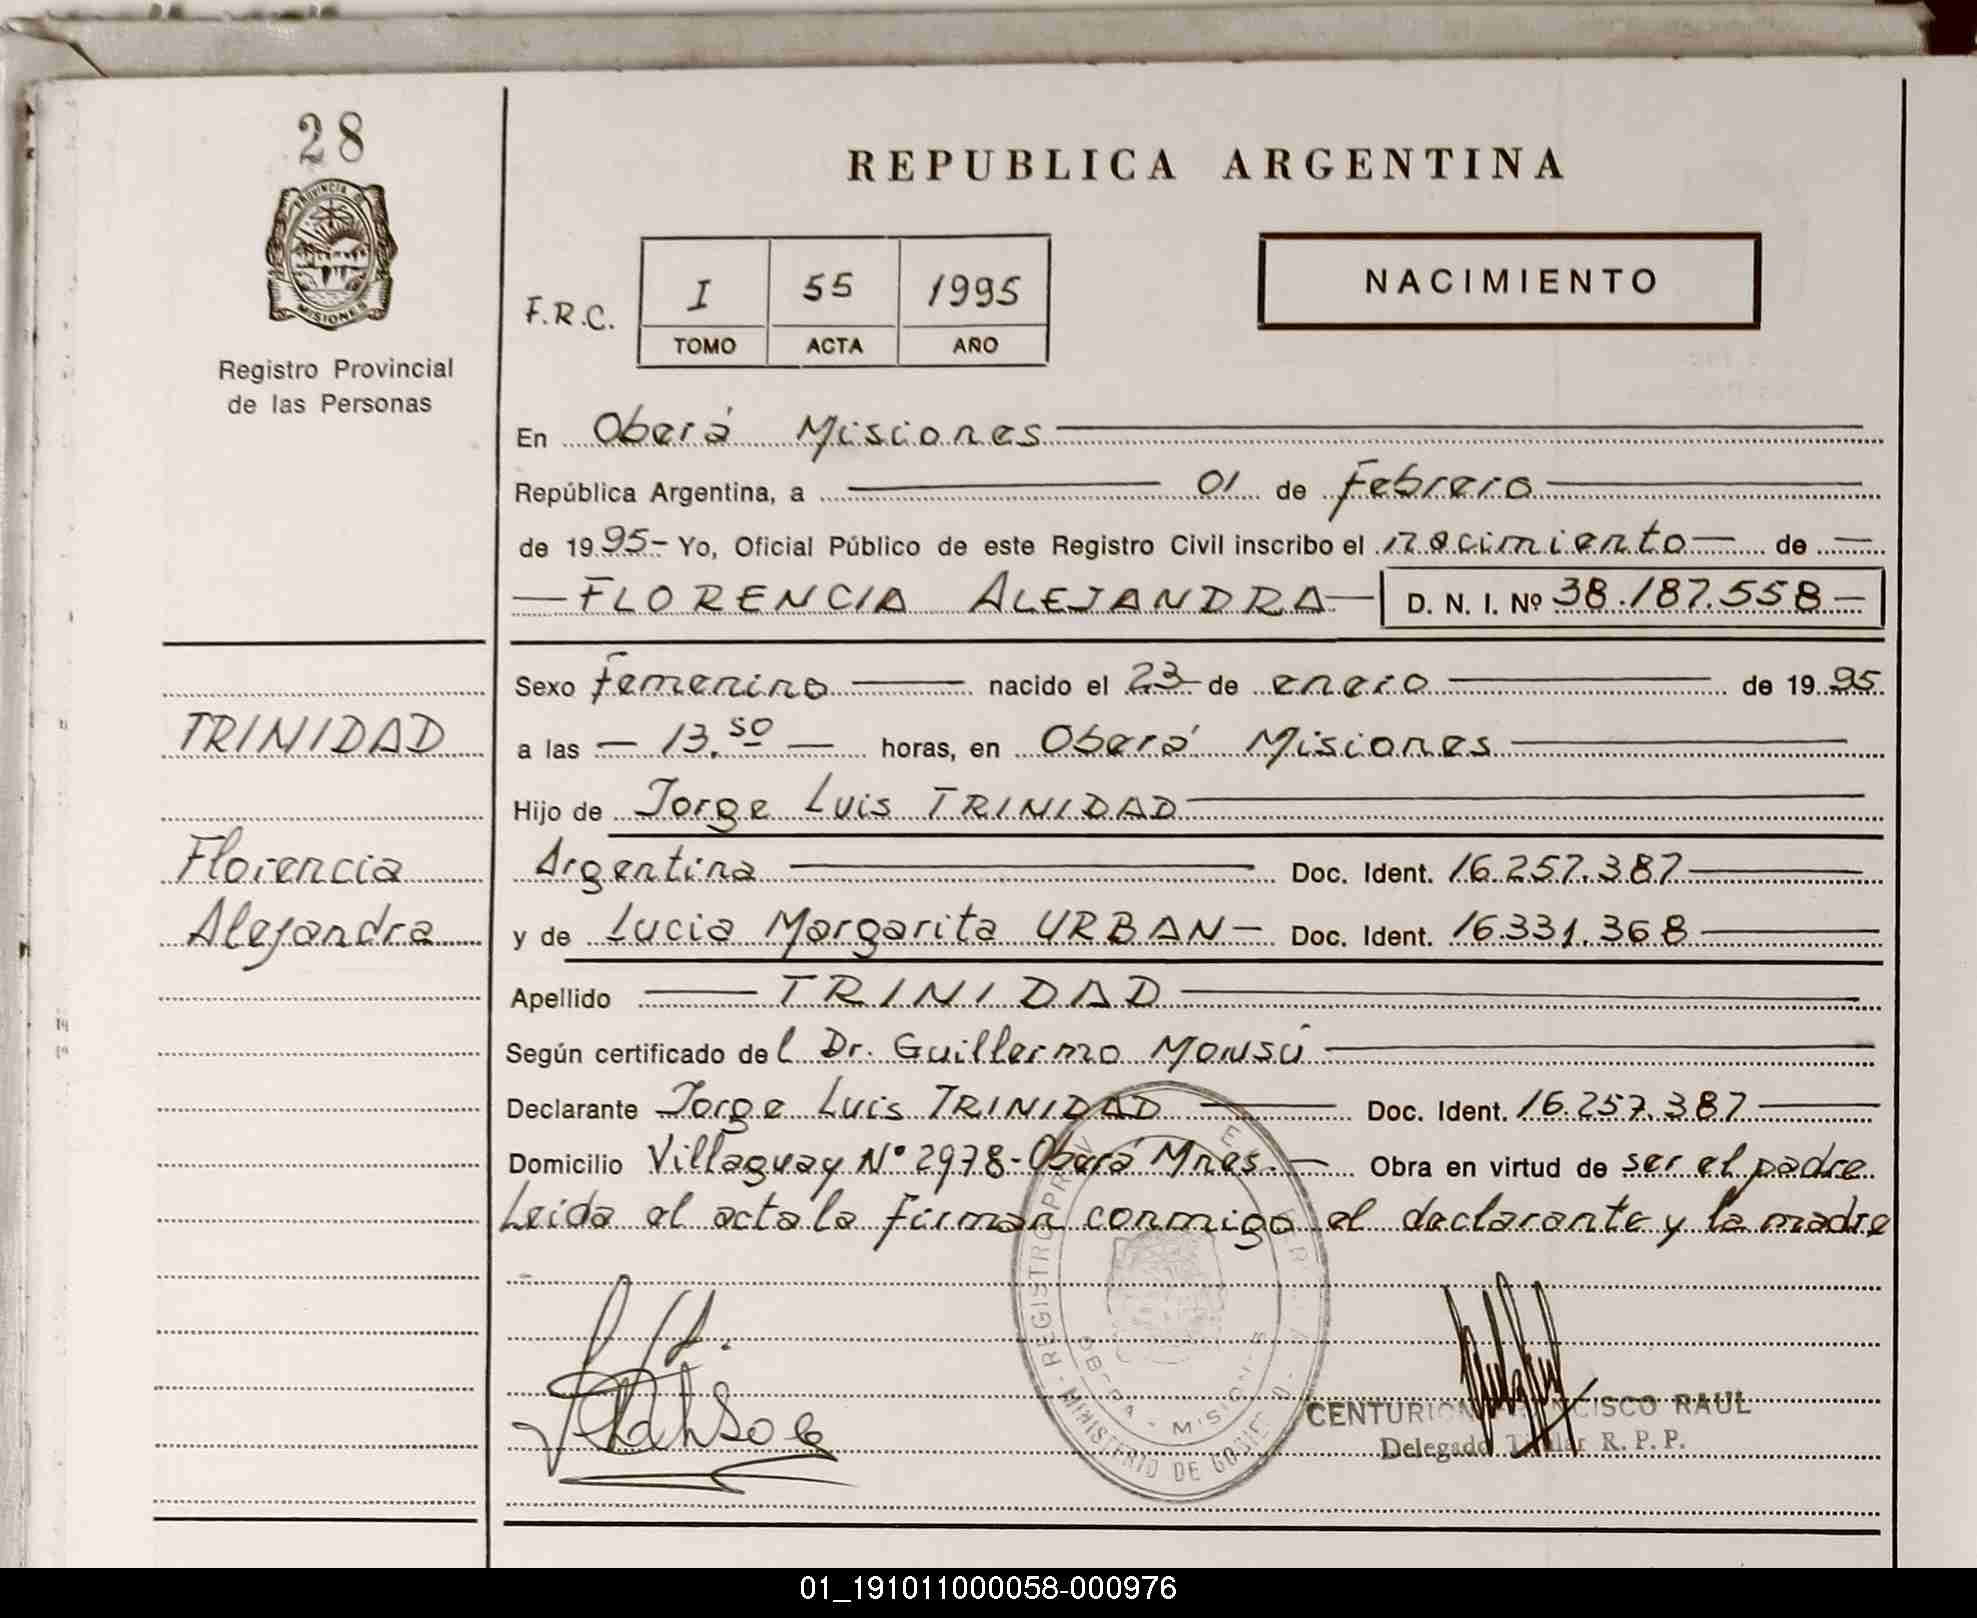 28
PROVINCIA DE
MISIONES
Registro Provincial
de las Personas
TRINIDAD
Florencia
Alejandra
REPUBLICA ARGENTINA
F.R.C.
I 55 1995
TOMO ACTA AÑO
NACIMIENTO
En Oberá Misiones
República Argentina, a 01 de Febrero
de 1995- Yo, Oficial Público de este Registro Civil inscribo el nacimiento de
FLORENCIA ALEJANDRA D. N. I. Nº 38.187.558
Sexo Femenino nacido el 23 de enero de 1995
a las 13.50 horas, en Oberá Misiones
Hijo de Jorge Luis TRINIDAD
Argentina Doc. Ident. 16.257.387
y de Lucia Margarita URBAN Doc. Ident. 16.331.368
Apellido TRINIDAD
Según certificado del Dr. Guillermo
Declarante Jorge Luis TRINIDAD Doc. Ident. 16.257.387
Domicilio Villaguay Nº 2978-Oberá Mnes. Obra en virtud de ser el padre
Leida el acta la firman conmigo el declarante y la madre
REGISTRO PROV
OBERA - MISIONES
MINISTERIO DE GOBIE
CENTURION FRANCISCO RAUL
Delegado Titular R. P. P.
01_191011000058-000976